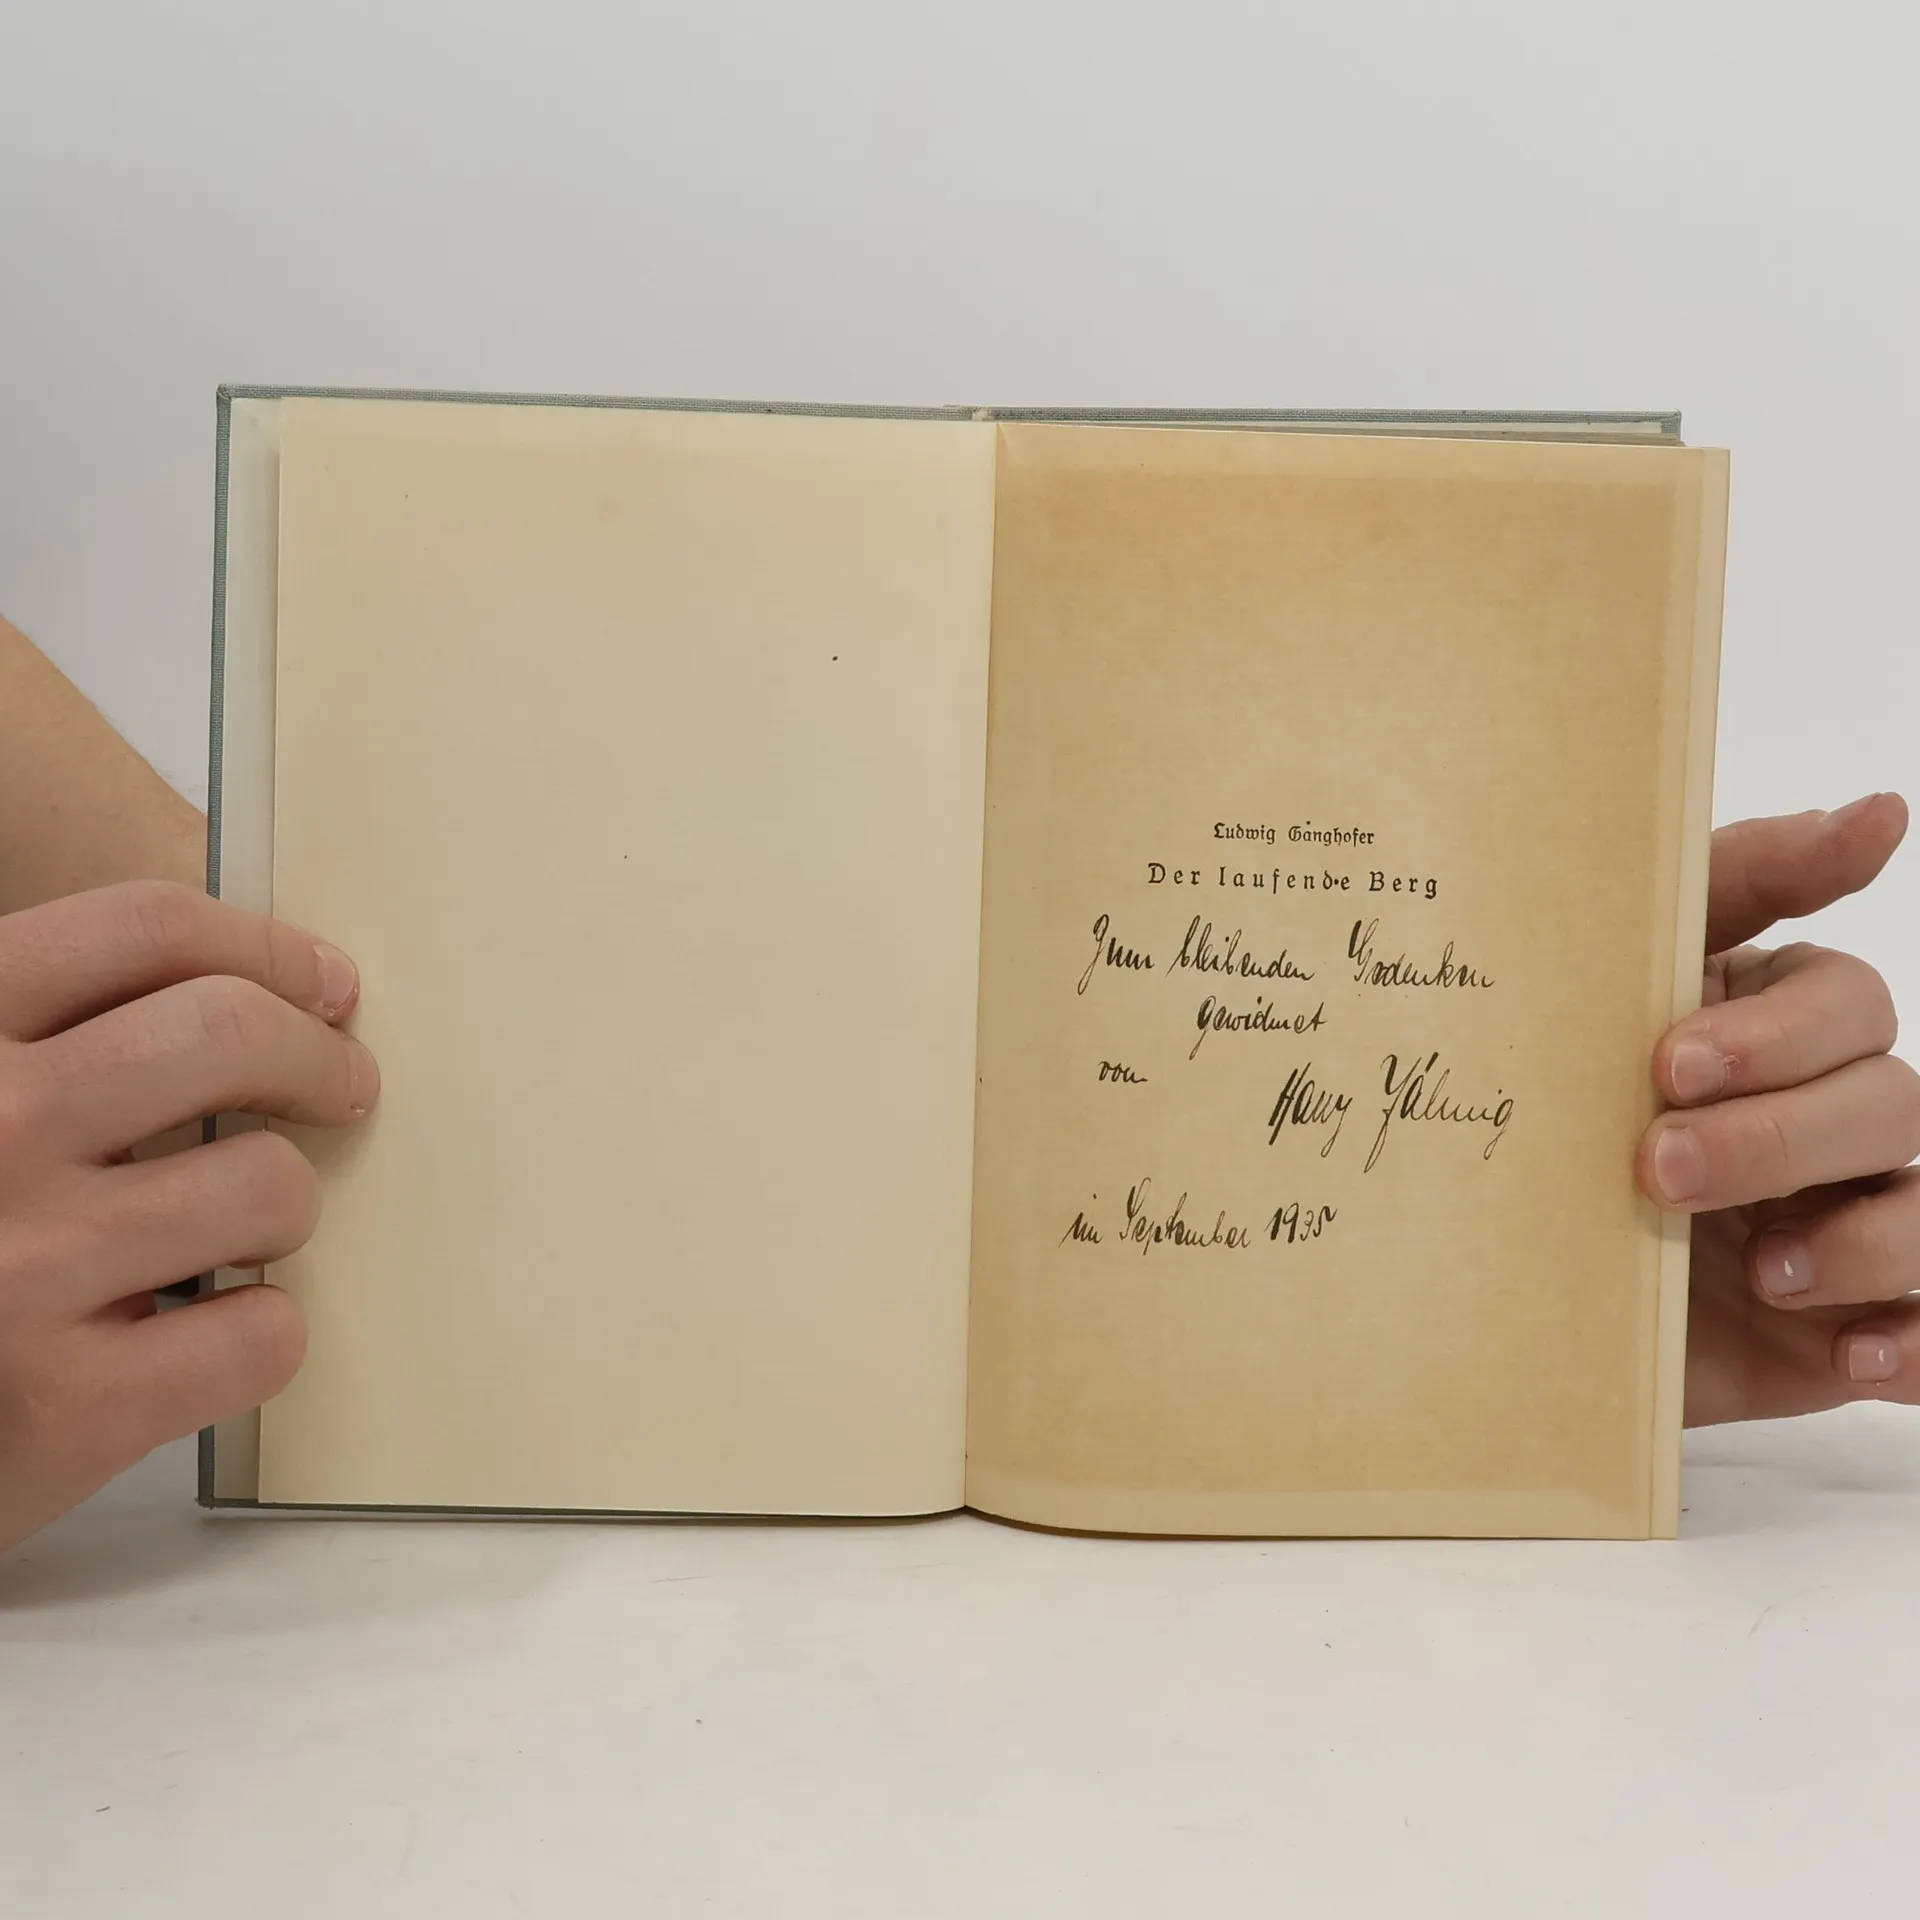 Ludwig Ganghofer
Der laufende Berg
Zum bleibenden Gedenken
gewidmet
von
im September 1935